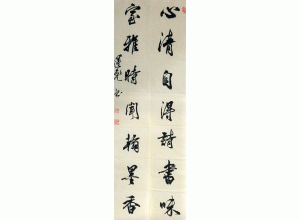 心清自得詩書味
室雅時闻翰墨香